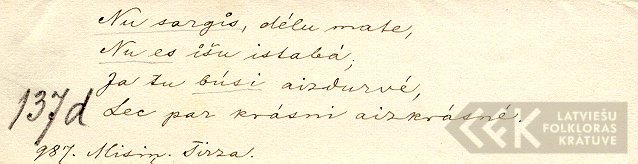 Nu sargis, délu mate,
Nu es išu istabá;
Ja tu búsi aizdurvé,
Lec par krásni aizkrásné.
137d
987. Misiņ. Tirza.
LATVIEŠU
FOLKLORAS
KRĀTUVE